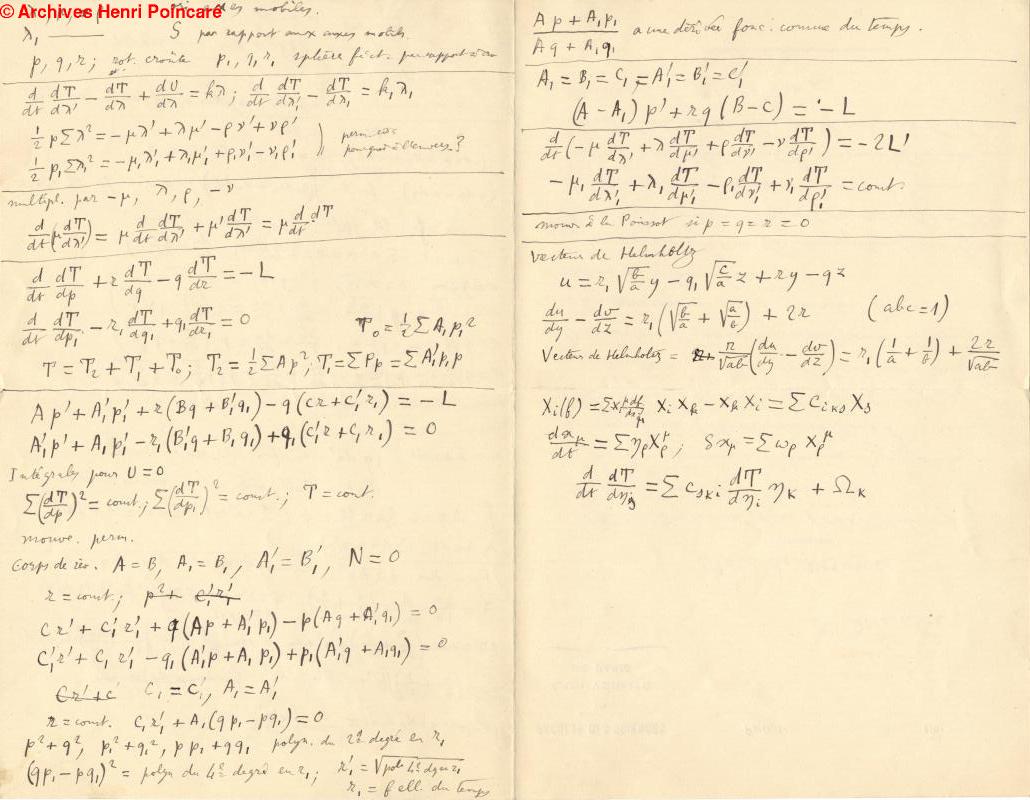 © Archives Henri Poincaré
des mobiles.
λ₁ ——— S par rapport aux axes mobiles.
p, q, r ; rot. croûte p₁, q₁, r₁ sphère fict. par rapport à
d/dt dT/dλ' − dT/dλ + dU/dλ = kλ ; d/dt dT/dλ₁' − dT/dλ₁ = k₁λ₁
½ pΣλ² = −μλ' + λμ' − ρν' + νρ'
½ p₁Σλ₁² = −μ₁λ₁' + λ₁μ₁' + ρ₁ν₁' − ν₁ρ₁'
pourquoi à l'envers ?
multipl. par −μ, λ, ρ, −ν
d/dt (μ dT/dλ') = μ d/dt dT/dλ' + μ' dT/dλ' = μ d/dt dT
d/dt dT/dp + r dT/dq − q dT/dr = −L
d/dt dT/dp₁ − r₁ dT/dq₁ + q₁ dT/dr₁ = 0 T₀ = ½ Σ A₁p₁²
T = T₂ + T₁ + T₀ ; T₂ = ½ Σ Ap² ; T₁ = ΣPp = ΣA₁'p₁p
Ap' + A₁'p₁' + r(Bq + B₁'q₁) − q(Cr + C₁'r₁) = −L
A₁'p' + A₁p₁' − r₁(B₁'q + B₁q₁) + q₁(C₁'r + C₁r₁) = 0
Intégrales pour U = 0
Σ(dT/dp)² = const. ; Σ(dT/dp₁)² = const. ; T = cont.
mouve. perm.
Corps de rév. A = B, A₁ = B₁, A₁' = B₁', N = 0
r = const ; p² + C₁'r₁'
Cr' + C₁'r₁' + q(Ap + A₁'p₁) − p(Aq + A₁'q₁) = 0
C₁'r' + C₁r₁' − q₁(A₁'p + A₁p₁) + p₁(A₁'q + A₁q₁) = 0
Cr' + c' C₁ = C₁', A₁ = A₁'
r = const. C₁r₁' + A₁(qp₁ − pq₁) = 0
p² + q², p₁² + q₁², pp₁ + qq₁ polyn. du 2ᵈ degré en r₁
(qp₁ − pq₁)² = polyn du 4ᵉ degré en r₁ ; r₁' = √pol. 4ᵉ deg en r₁
r₁ = f ell. du temps
Ap + A₁p₁ / Aq + A₁q₁ a une dérivée fonc. connue du temps.
A₁ = B₁ = C₁ = A₁' = B₁' = C₁'
(A − A₁) p' + rq (B − C) = −L
d/dt (−μ dT/dλ' + λ dT/dμ' + ρ dT/dν' − ν dT/dρ') = −2L'
−μ₁ dT/dλ₁' + λ₁ dT/dμ₁' − ρ₁ dT/dν₁' + ν₁ dT/dρ₁' = const.
mouv à la Poinsot si p = q = r = 0
Vecteur de Helmholtz
u = r₁ √(b/a) y − q₁ √(c/a) z + ry − qz
du/dy − dv/dz = r₁ (√(b/a) + √(a/b)) + 2r (abc = 1)
Vecteur de Helmholtz = r/√ab (du/dy − dv/dz) = r₁ (1/a + 1/b) + 2r/√ab
Xᵢ(f) = Σxᵢᵘ df/dxμ XᵢXₖ − XₖXᵢ = Σ cᵢₖₛ Xₛ
dxμ/dt = Σ ηρXρᵘ ; δxμ = Σ ωρ Xρᵘ
d/dt dT/dηₛ = Σ cₛₖᵢ dT/dηᵢ ηₖ + Ωₖ